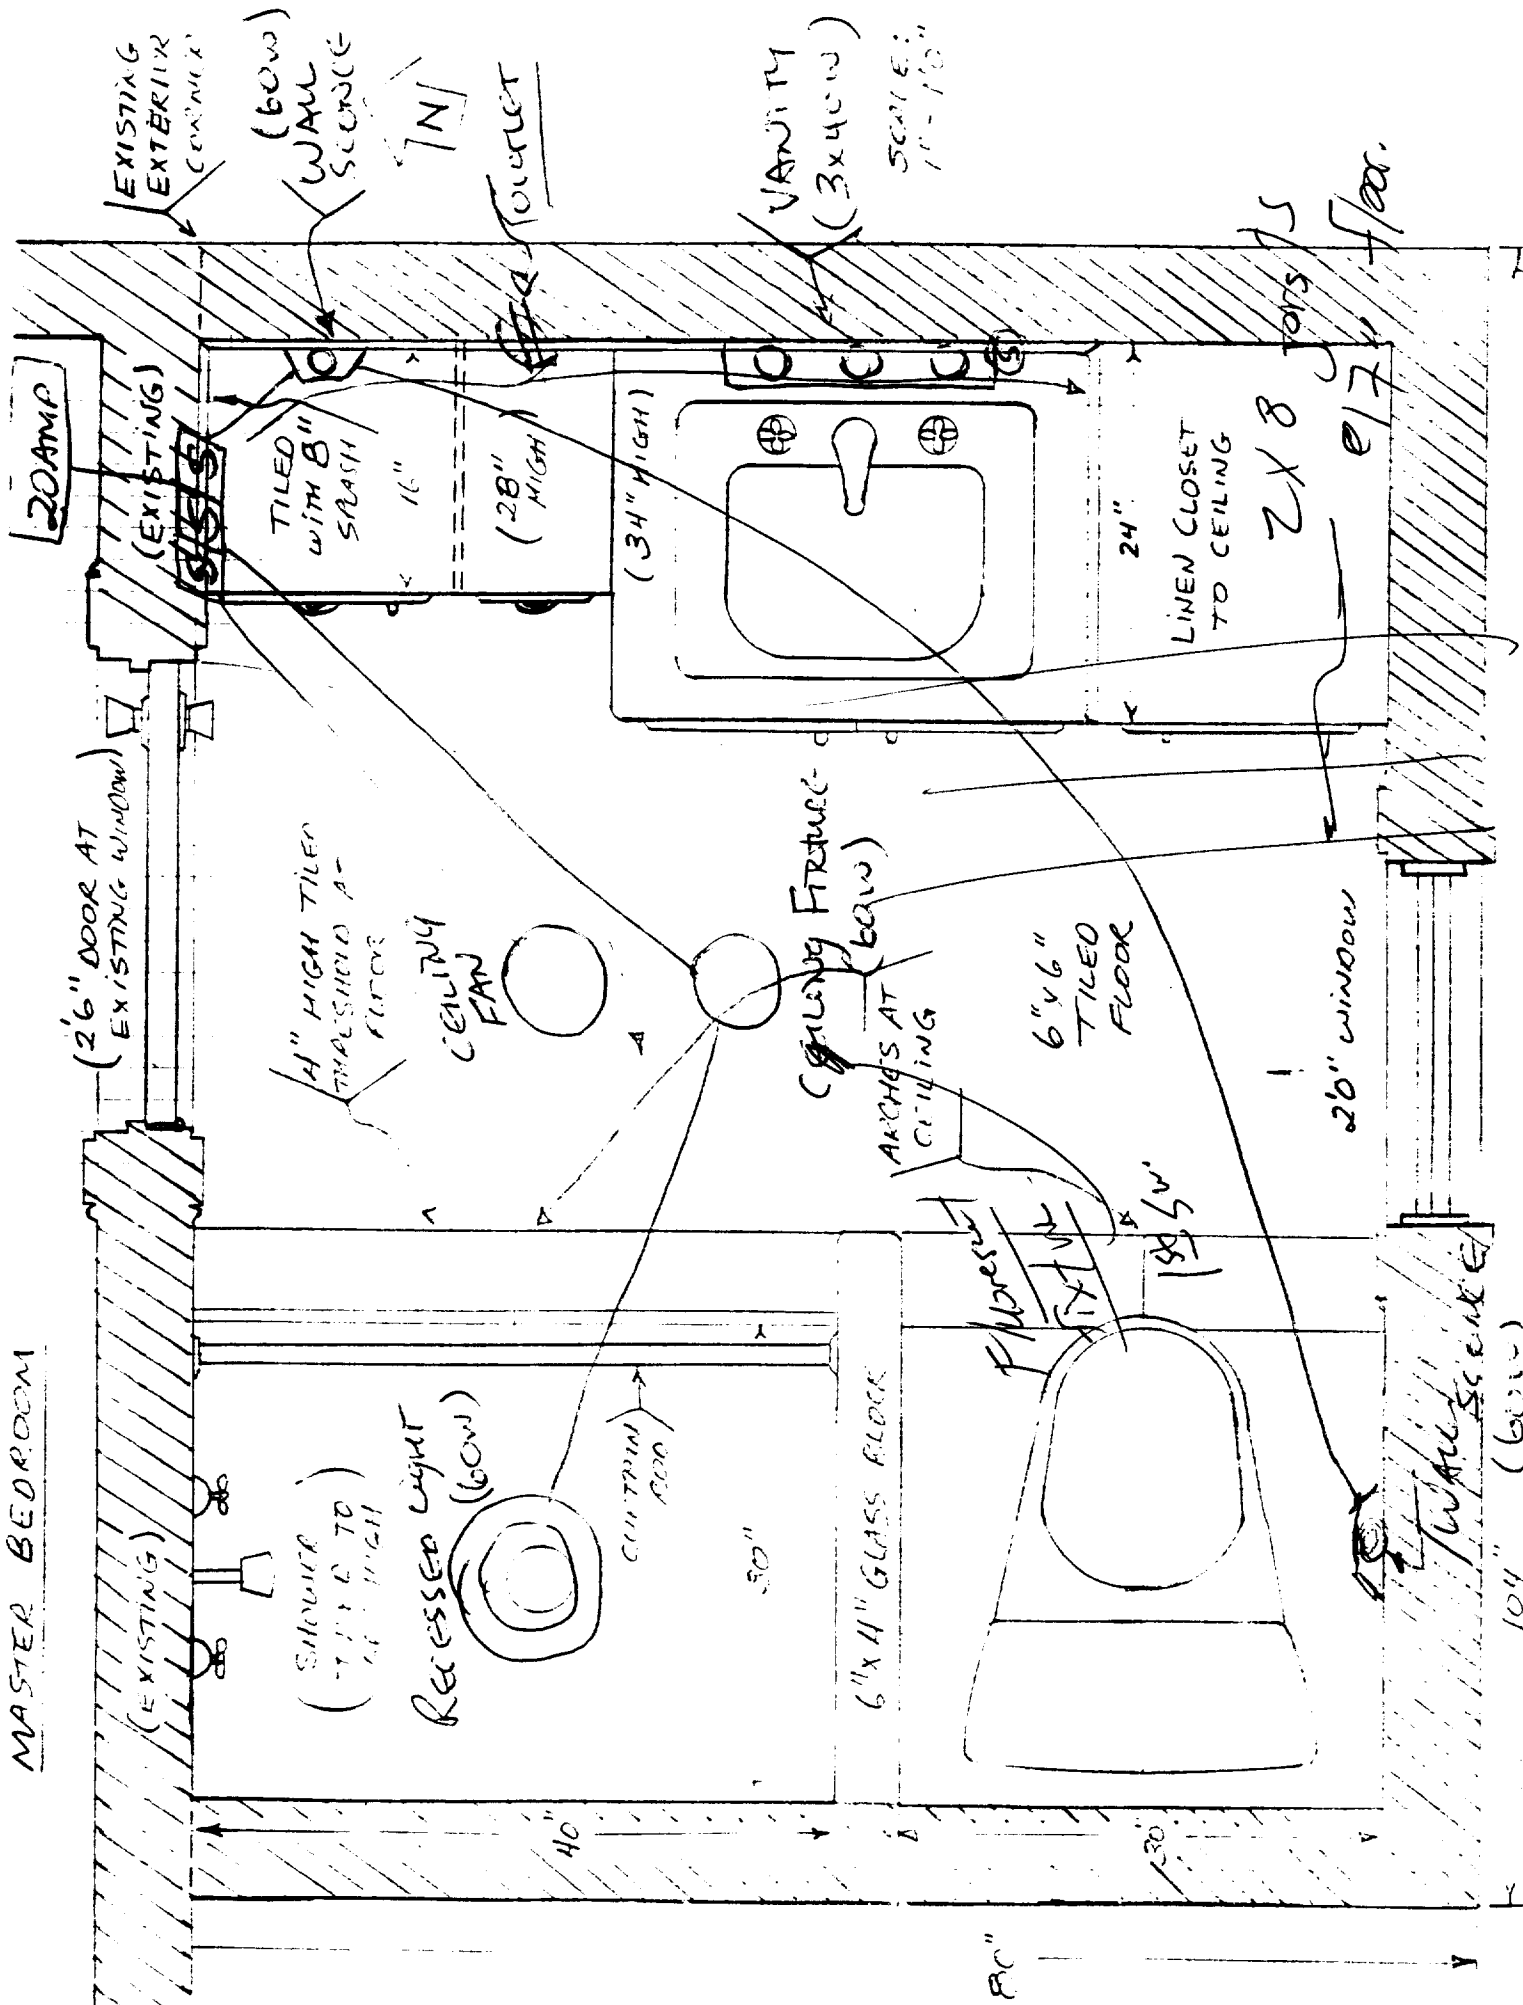 MASTER BEDROOM
(EXISTING)
(2'6" DOOR AT
EXISTING WINDOW)
20AMP
(EXISTING)
S S S
EXISTING
EXTERIOR
CORNER
(60W)
WALL
SCONCE
N
OUTLET
VANITY
(3x40W)
SCALE:
1"-1'0"
TILED
WITH 8"
SPLASH
16"
(28"
HIGH)
(34" HIGH)
(S)
24"
LINEN CLOSET
TO CEILING
2X8
floor.
4" HIGH TILED
THRESHOLD AT
CEILING
FAN
CEILING FIXTURE
(60W)
ARCHES AT
CEILING
6"x6"
TILED
FLOOR
2'0" WINDOW
(SHOWER
TILED TO
HIGH)
RECESSED Light
(60W)
CURTAIN
ROD
30"
6"x4" GLASS BLOCK
Fixture
WALL
SCONCE
(60W)
40"
30"
80"
104"